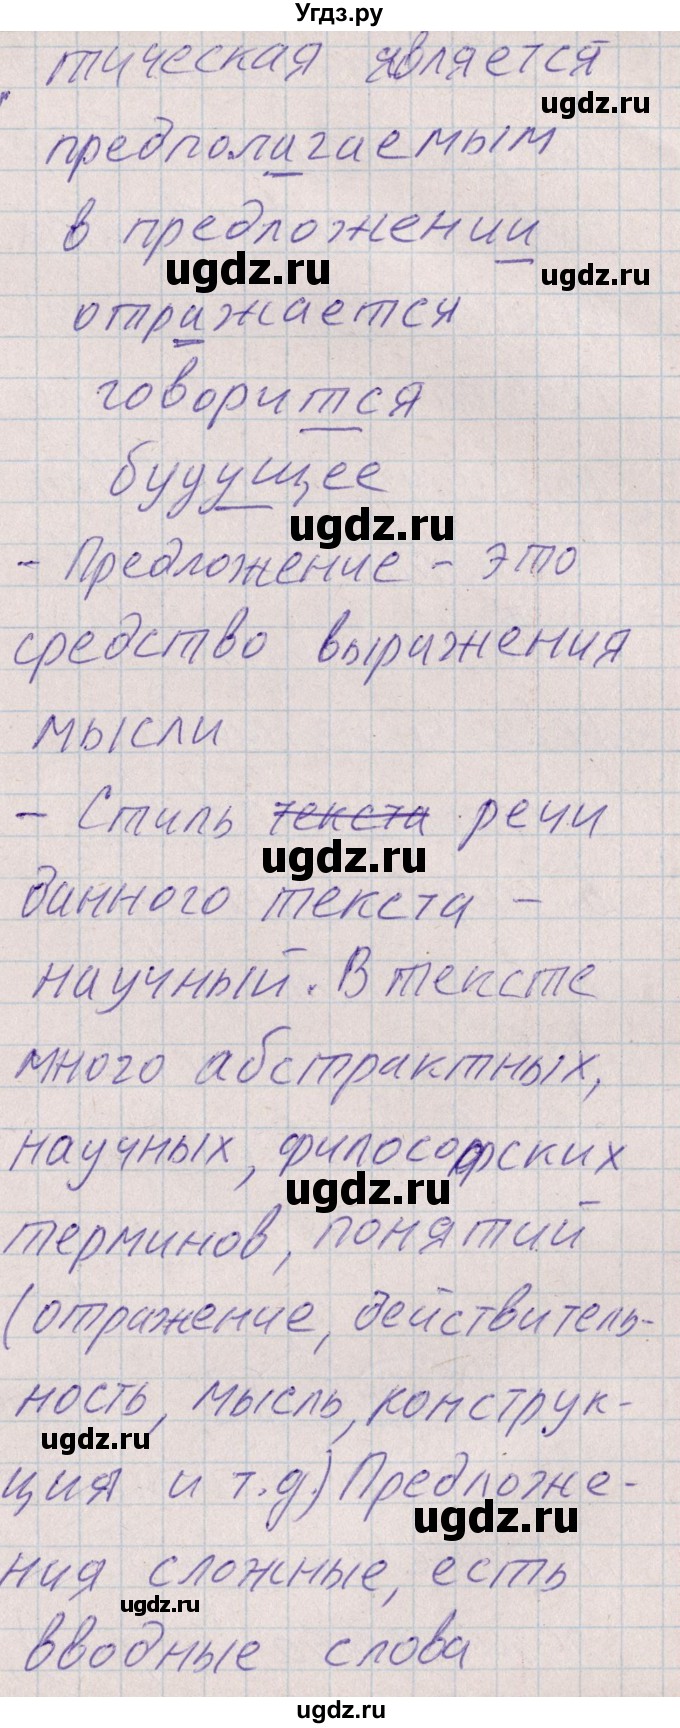 Угдз.ру
тическая является
ugdz.ru
предполагаемым
в предложении
ugdz.ru
ugdz.ru
отражается
говорится
будущее
ugdz.ru
- Предложение - это
средство выражения
мысли
- Стиль текста речи
ugdz.ru
данного текста -
научный. В тексте
много абстрактных,
научных, философских
ugdz.ru
терминов, понятий
(отражение, действитель-
ность, мысль, конструк-
ugdz.ru
ция и т.д.) Предложе-
ugdz.ru
ния сложные, есть
ugdz.ru
вводные слова
ugdz.ru